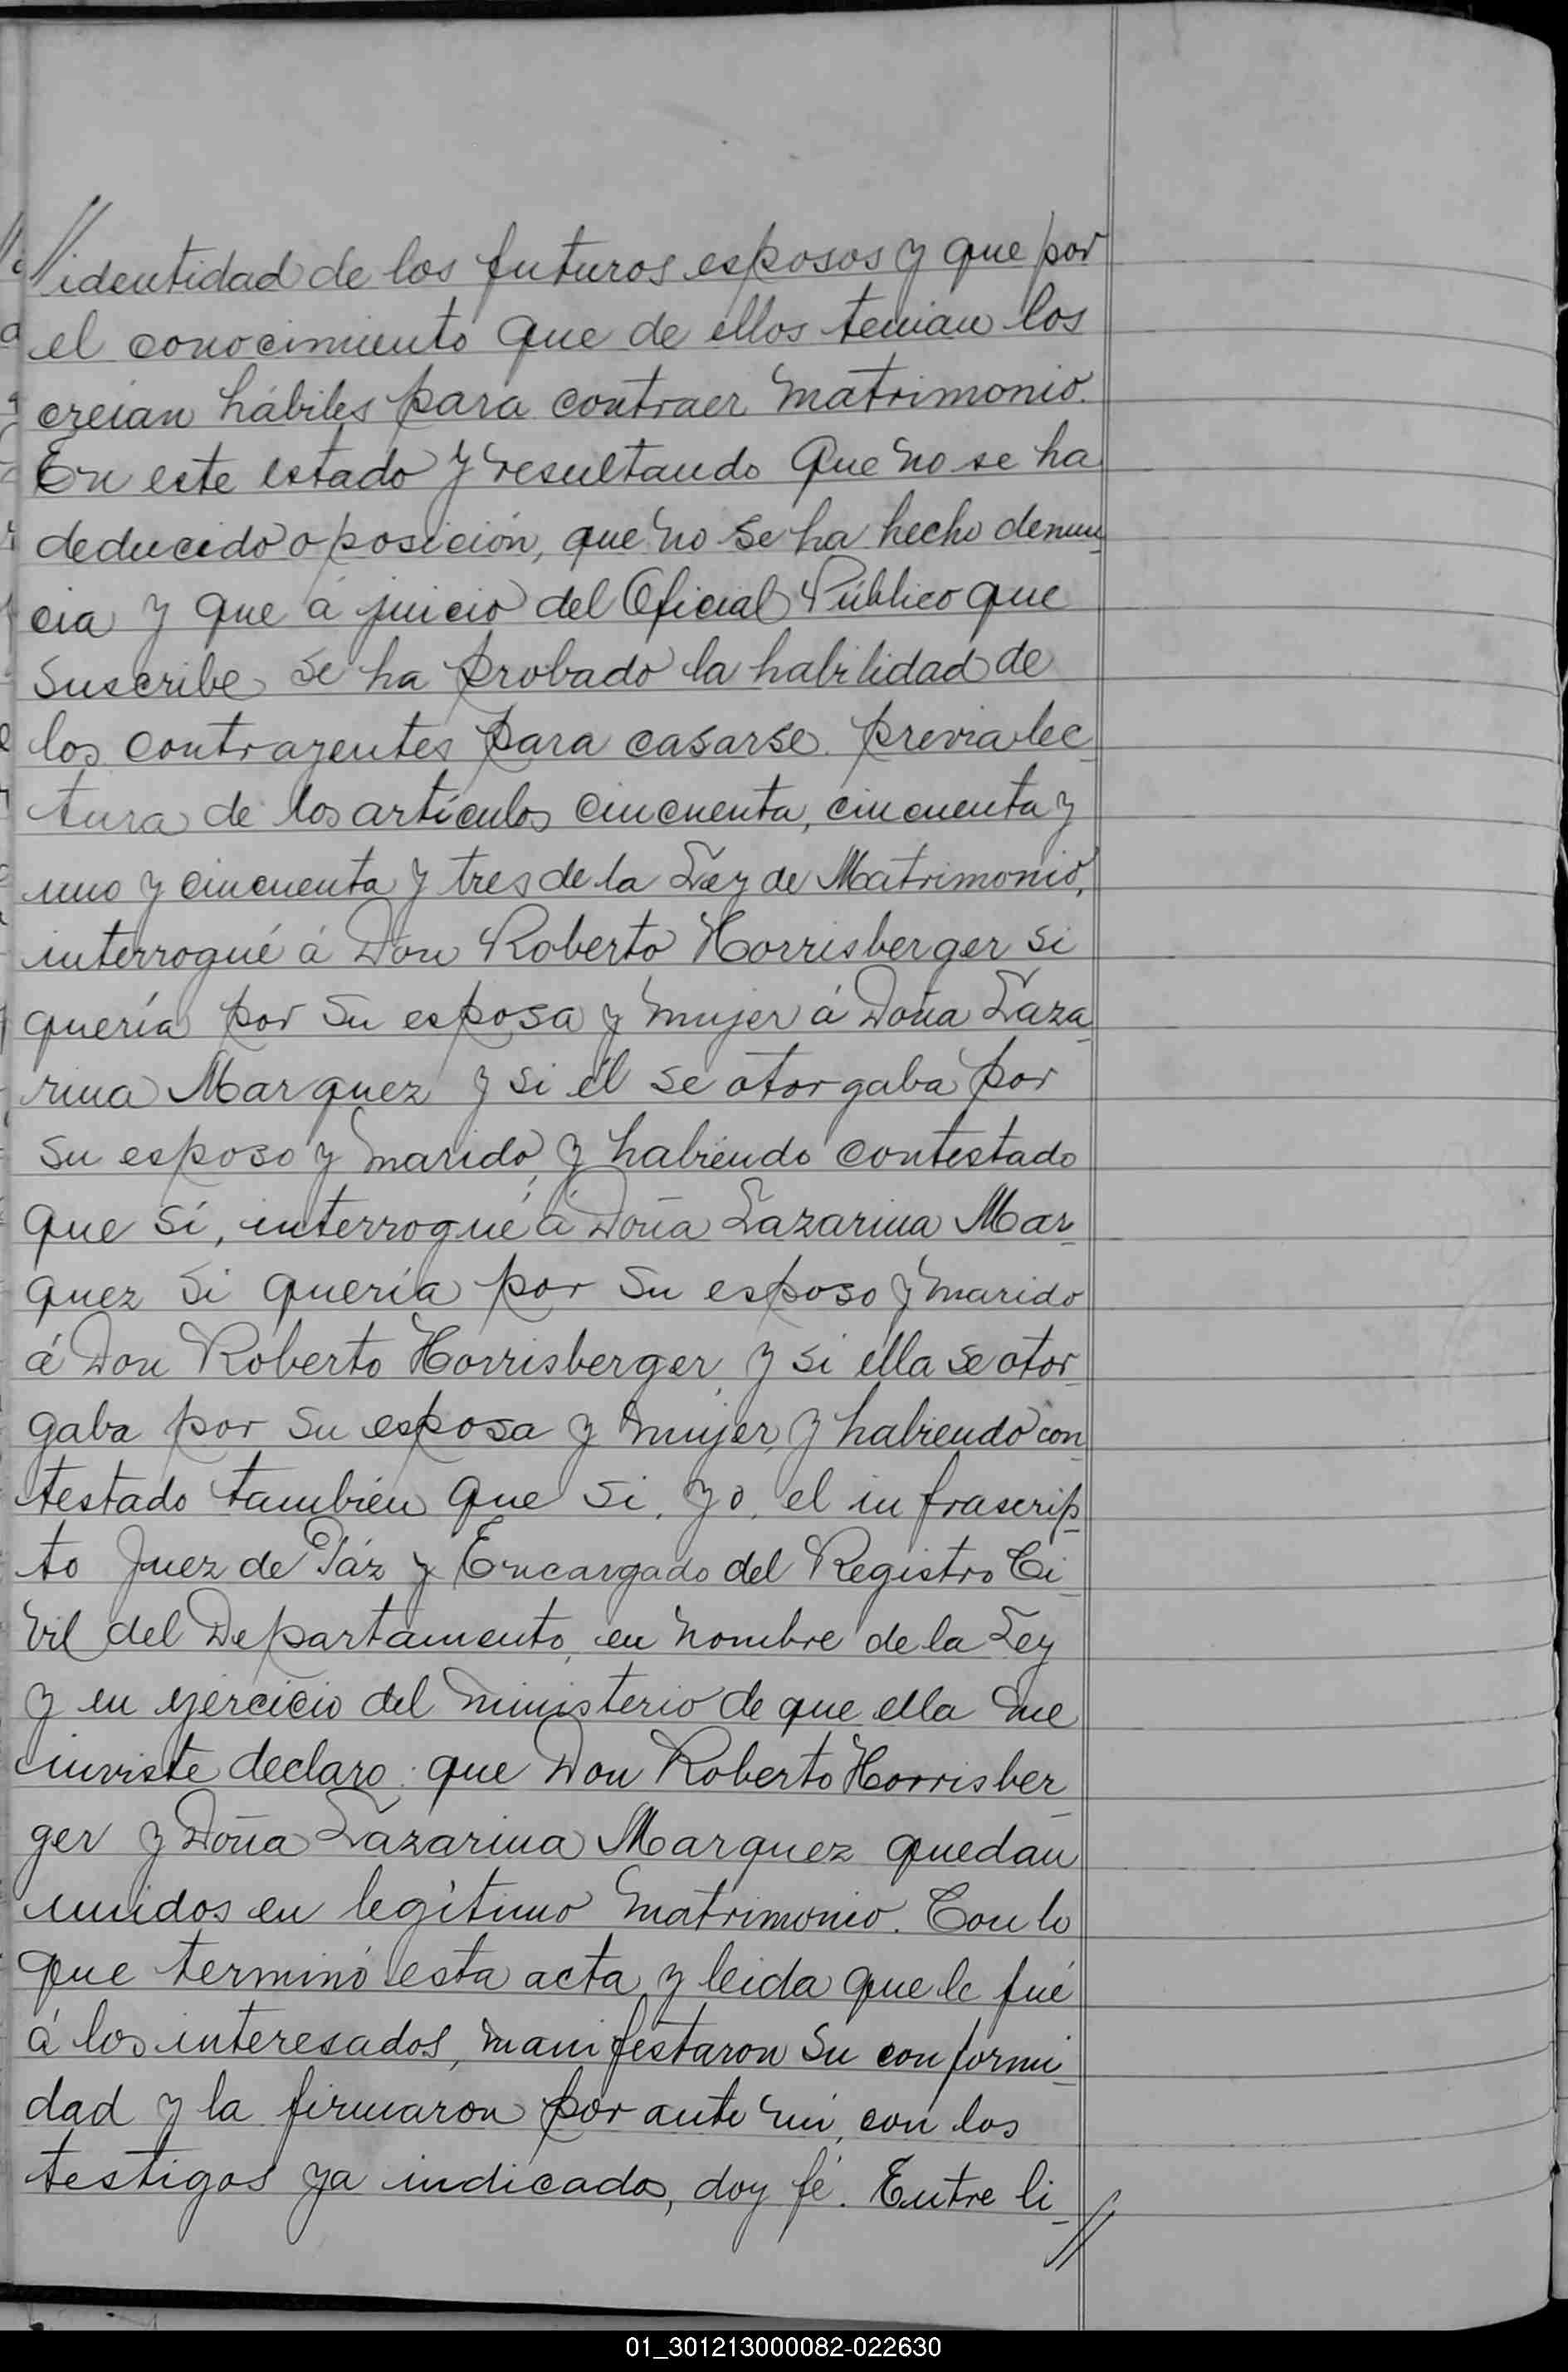 //identidad de los futuros esposos y que por
el conocimiento que de ellos tenian los
creian hábiles para contraer matrimonio.
En este estado y resultando que no se ha
deducido oposición, que no se ha hecho denun
cia y que á juicio del Oficial Público que
suscribe se ha probado la habilidad de
los contrayentes para casarse. previa lec
tura de los artículos cincuenta, cincuenta y
uno y cincuenta y tres de la Ley de Matrimonio,
interrogué á Don Roberto Horrisberger si
quería por su esposa y mujer á Doña Laza
rina Marquez y si él se otorgaba por
su esposo y marido, y habiendo contestado
que sí, interrogué á Doña Lazarina Mar
quez si quería por su esposo y marido
á Don Roberto Horrisberger, y si ella se otor
gaba por su esposa y mujer, y habiendo con
testado tambien que si, yo, el infrascrip
to Juez de Páz y Encargado del Registro Ci
vil del Departamento, en nombre de la Ley
y en ejercicio del ministerio de que ella me
inviste declaro: que Don Roberto Horrisber
ger y Doña Lazarina Marquez quedan
unidos en legítimo matrimonio. Con lo
que terminó esta acta, y leida que le fué
á los interesados, manifestaron su conformi
dad y la firmaron por ante mi, con los
testigos ya indicados, doy fé. Entre li//
01_301213000082-022630